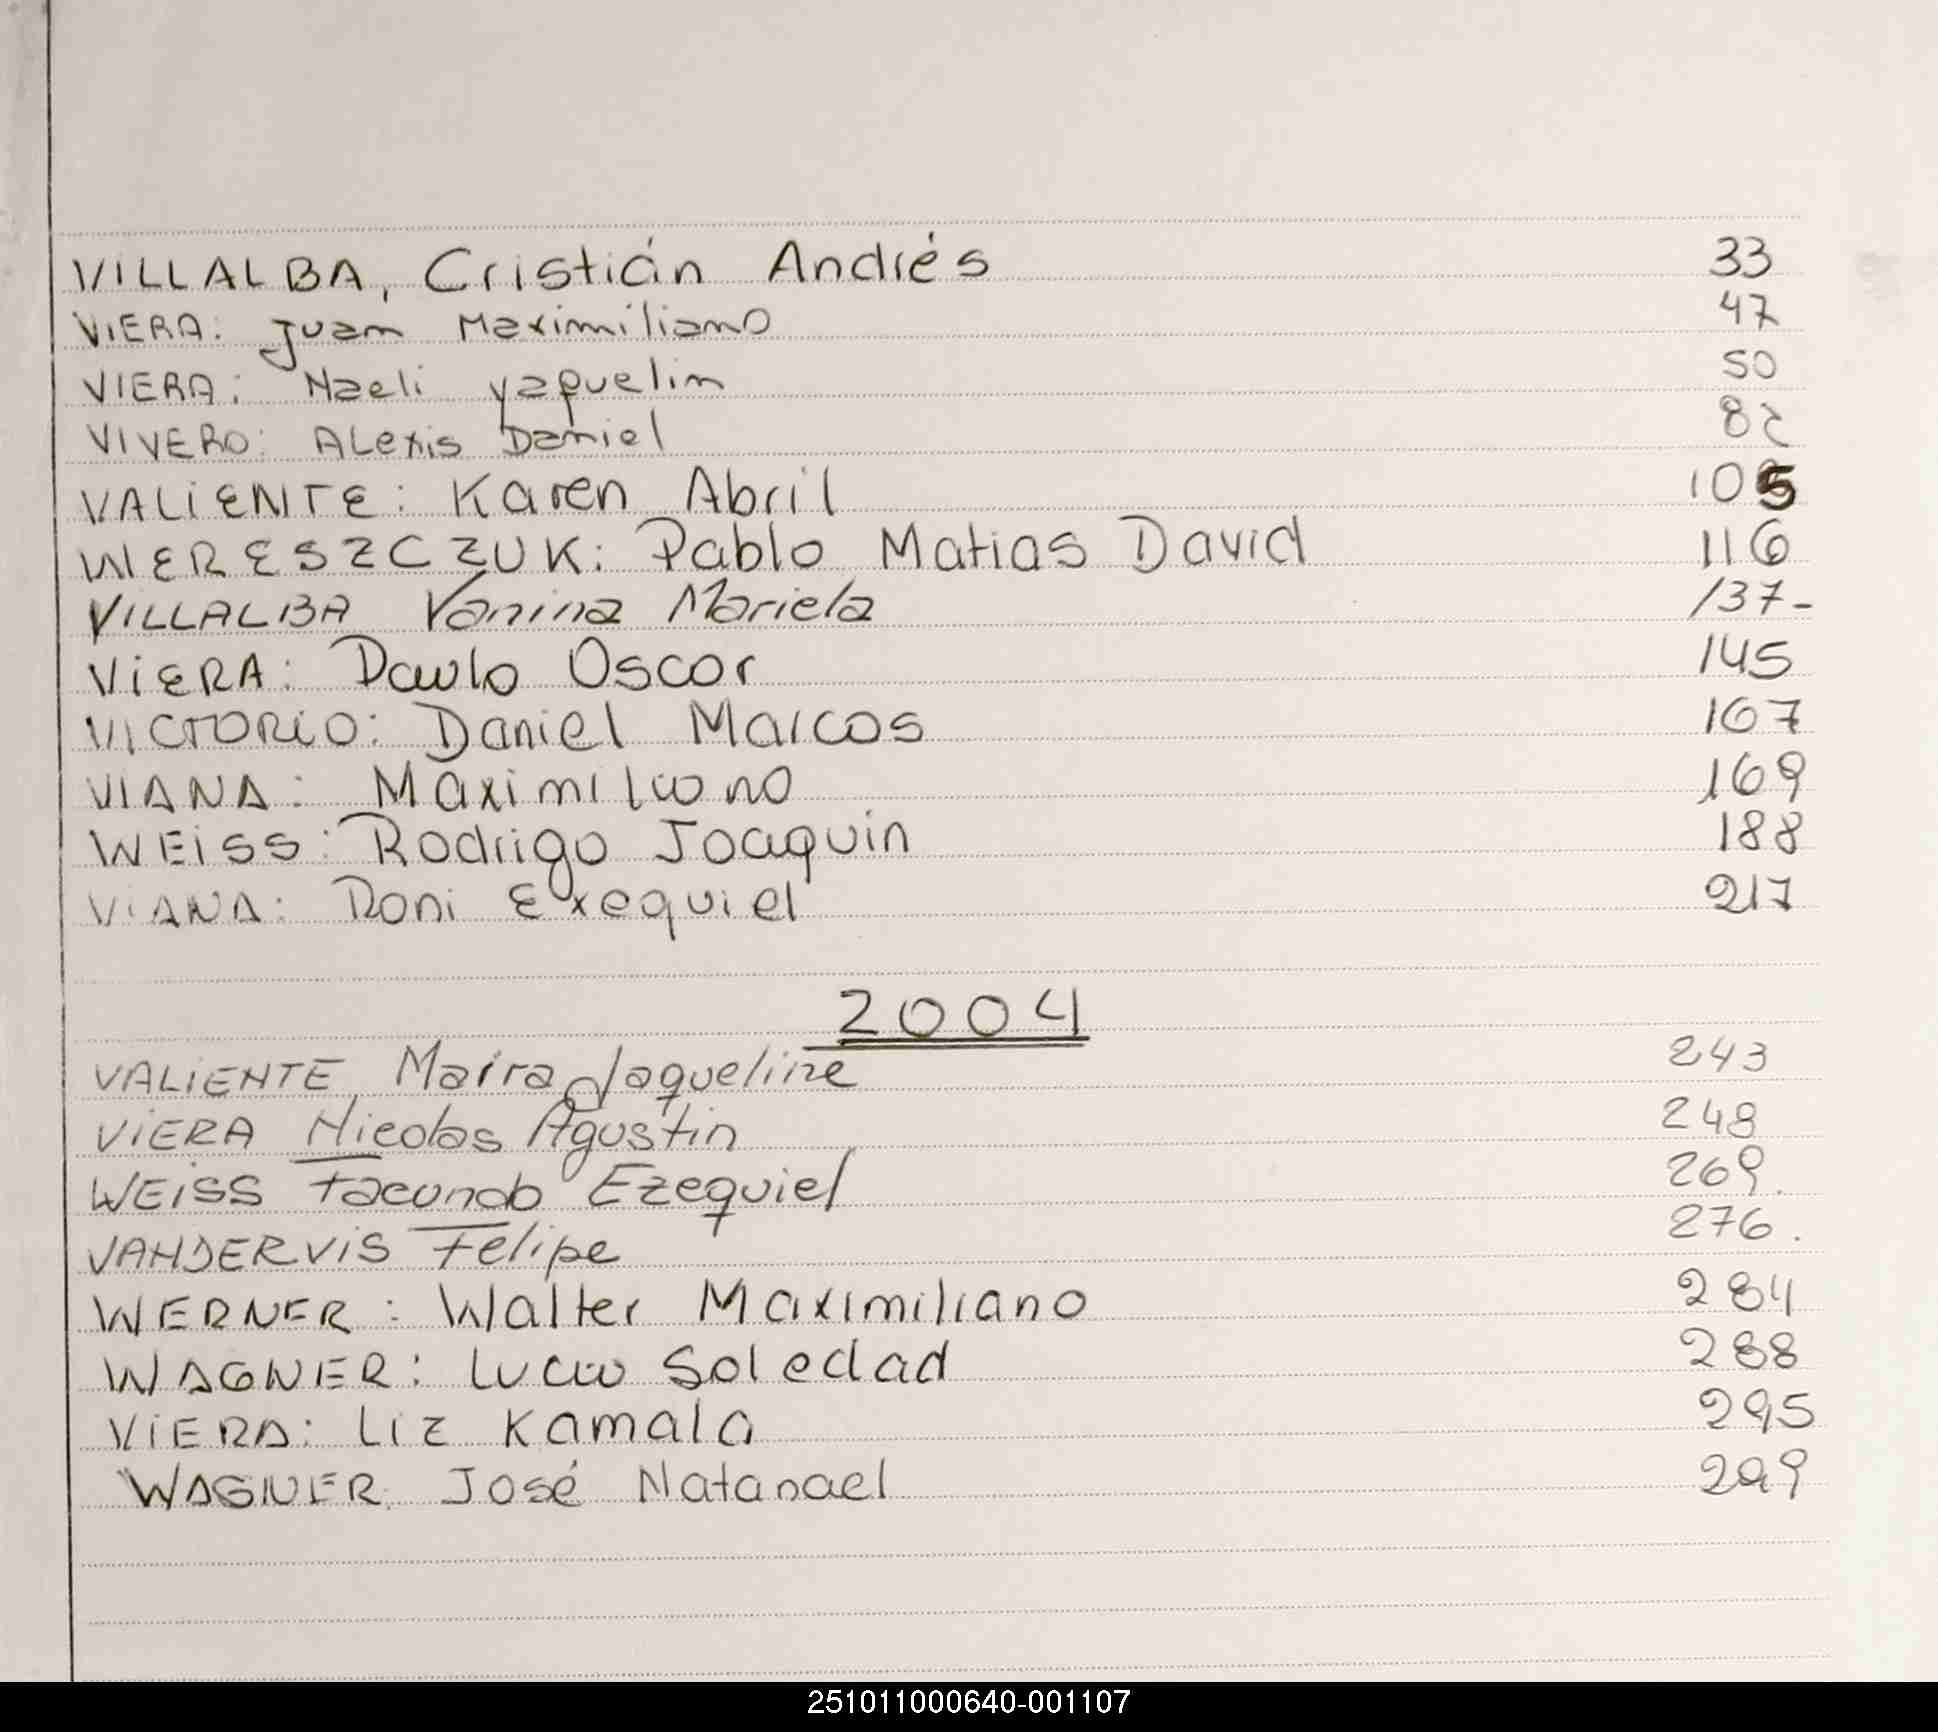 VILLALBA, Cristián Andrés 33
VIERA: Juan Maximiliano 47
VIERA: Naeli yaquelin 50
VIVERO: ALexis Daniel 82
VALIENTE: Karen Abril 105
WERESZCZUK: Pablo Matias David 116
VILLALBA Vanina Mariela 137-
VIERA: Paulo Oscar 145
VICTORIO: Daniel Marcos 167
VIANA: Maximiliano 169
WEISS: Rodrigo Joaquin 188
VIANA: Roni Exequiel 217
2004
VALIENTE Maira Jaqueline 243
VIERA Nicolas Agustin 248
WEISS Facundo Ezequiel 269.
VANDERVIS Felipe 276.
WERNER: Walter Maximiliano 284
WAGNER: Lucia Soledad 288
VIERA: Liz Kamala 295
WAGNER José Natanael 299
251011000640-001107